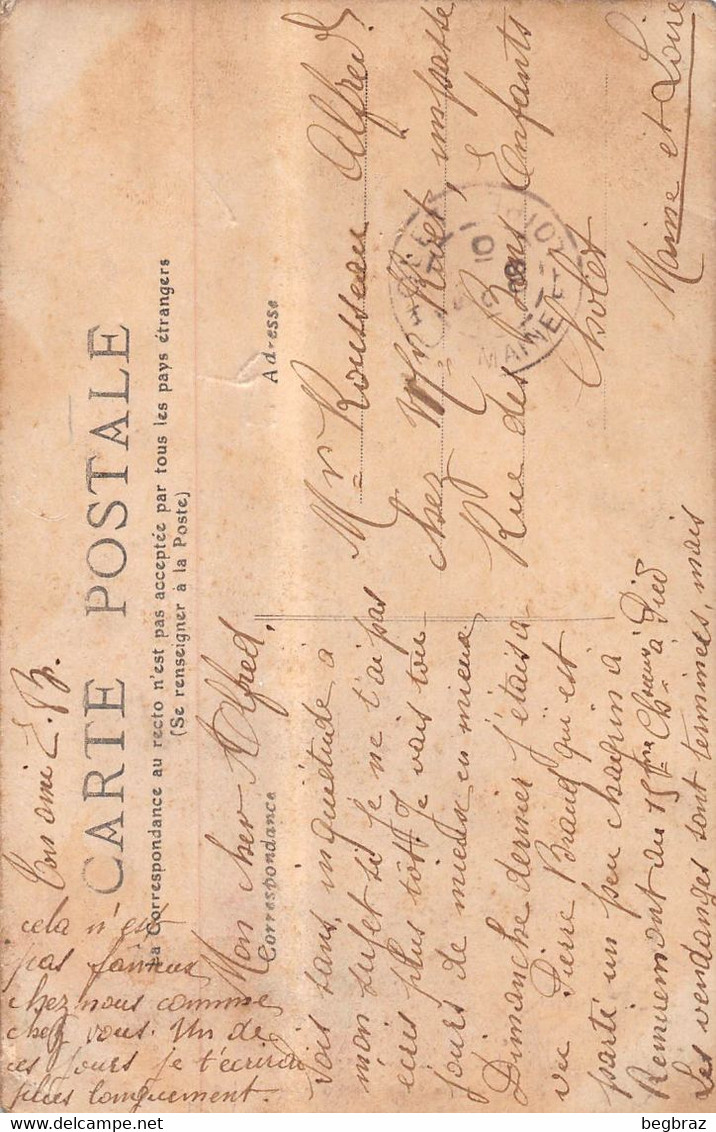 CARTE POSTALE
La Correspondance au recto n'est pas acceptée par tous les pays étrangers
(Se renseigner à la Poste)
Correspondance
Adresse
Mon cher Alfred,
Sois sans inquiétude à
mon sujet si je ne t'ai pas
écris plus tôt. Je vais tou-
jours de mieux en mieux
Dimanche dernier j'étais à
vu Pierre Braud qui est
parti un peu chagrin à
Remiremont au 15ème Chasseur
Bn à Pied
Les vendanges sont terminées, mais
cela n'est
pas fameux
chez nous comme
chez vous. Un de
ces jours je t'écrirai
plus longuement.
Ton ami
Mr Rousseau Alfred
chez Mr impasse
Rue des Bons Enfants
Cholet
Maine et Loire
10
08
MAINE-ET-LOIRE
begbraz